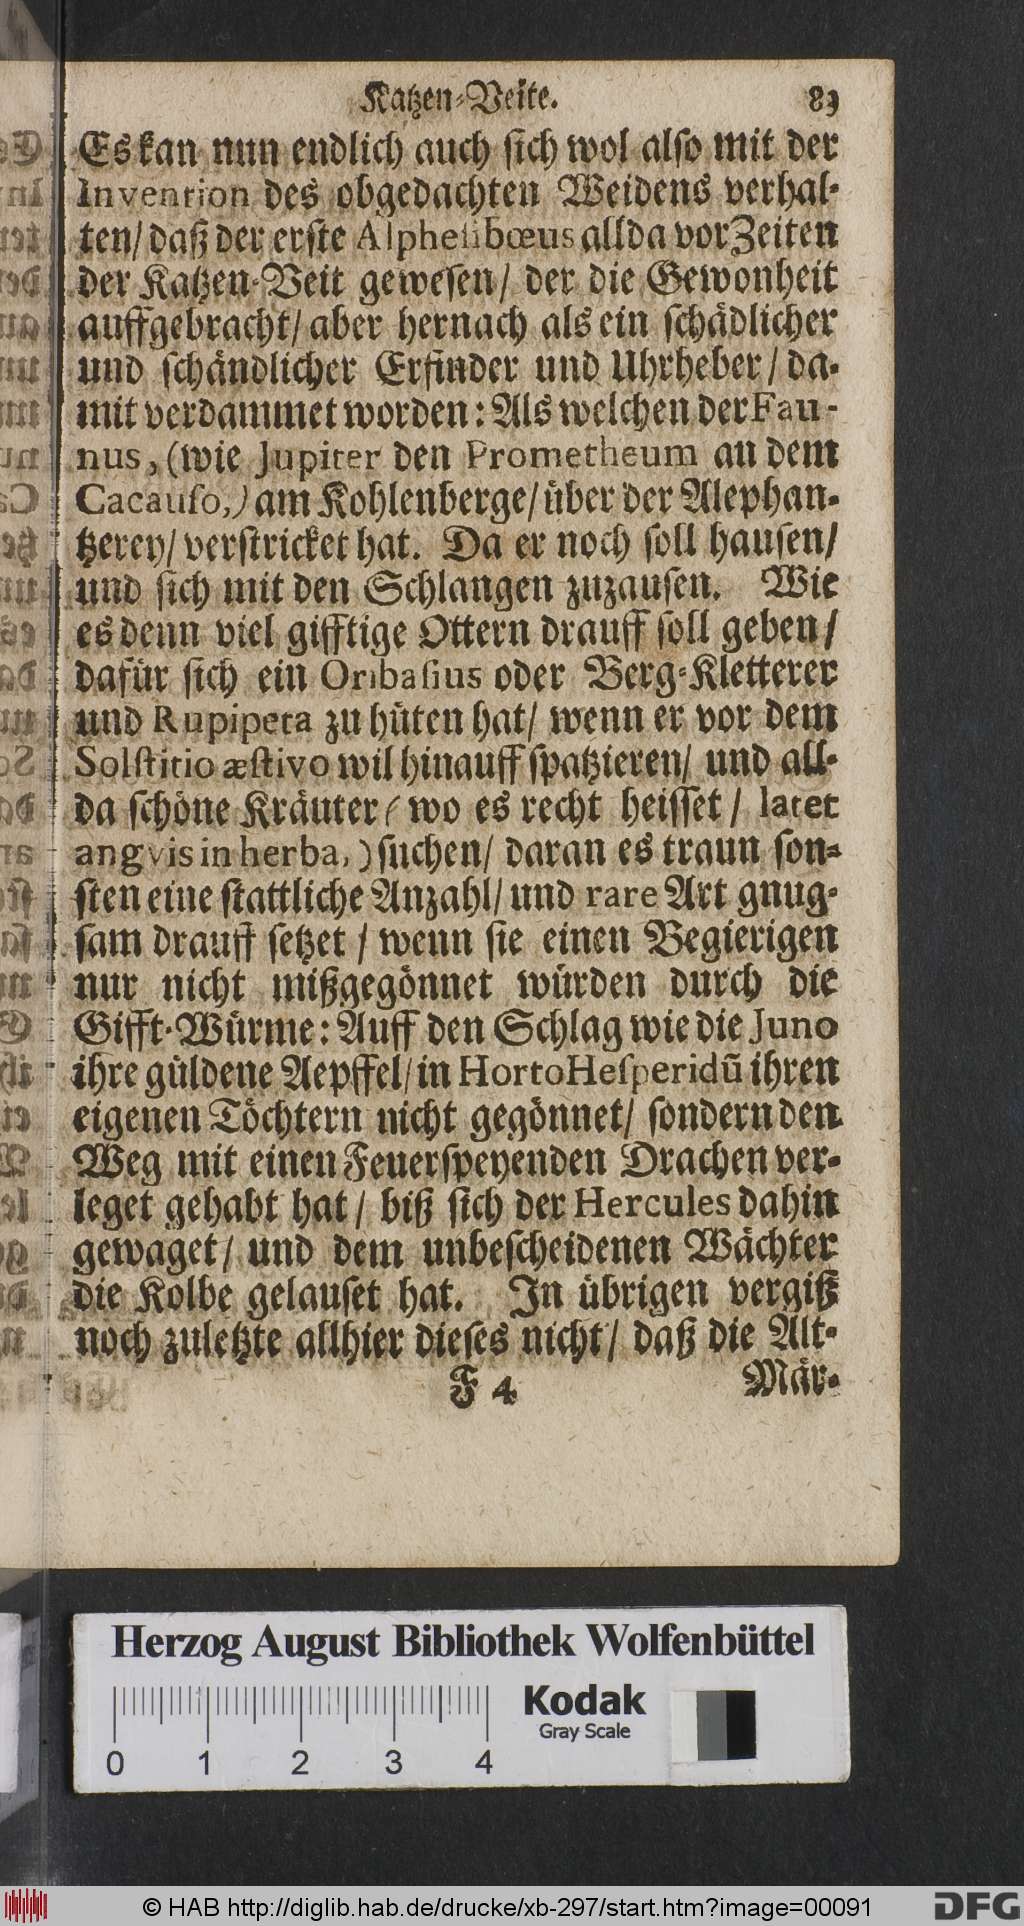 Katzen-Veite. 83
Es kan nun endlich auch sich wol also mit der
Invention des obgedachten Weidens verhal-
ten/ daß der erste Alphesibœus allda vor Zeiten
der Katzen-Veit gewesen/ der die Gewonheit
auffgebracht/ aber hernach als ein schädlicher
und schändlicher Erfinder und Uhrheber/ da-
mit verdammet worden: Als welchen der Fau-
nus, (wie Jupiter den Prometheum an dem
Cacauso,) am Kohlenberge/ über der Alephan-
tzerey/ verstricket hat. Da er noch soll hausen/
und sich mit den Schlangen zuzausen. Wie
es denn viel gifftige Ottern drauff soll geben/
dafür sich ein Oribasius oder Berg-Kletterer
und Rupipeta zu hüten hat/ wenn er vor dem
Solstitio æstivo wil hinauff spatzieren/ und all-
da schöne Kräuter (wo es recht heisset/ latet
angvis in herba,) suchen/ daran es traun son-
sten eine stattliche Anzahl/ und rare Art gnug-
sam drauff setzet/ wenn sie einen Begierigen
nur nicht mißgegönnet würden durch die
Gifft-Würme: Auff den Schlag wie die Juno
ihre güldene Aepffel/ in Horto Hesperidũ ihren
eigenen Töchtern nicht gegönnet/ sondern den
Weg mit einen Feuerspeyenden Drachen ver-
leget gehabt hat/ biß sich der Hercules dahin
gewaget/ und dem unbescheidenen Wächter
die Kolbe gelauset hat. In übrigen vergiß
noch zuletzte allhier dieses nicht/ daß die Alt-
F 4 Mär-
Herzog August Bibliothek Wolfenbüttel
Kodak
Gray Scale
0 1 2 3 4
© HAB http://diglib.hab.de/drucke/xb-297/start.htm?image=00091
DFG